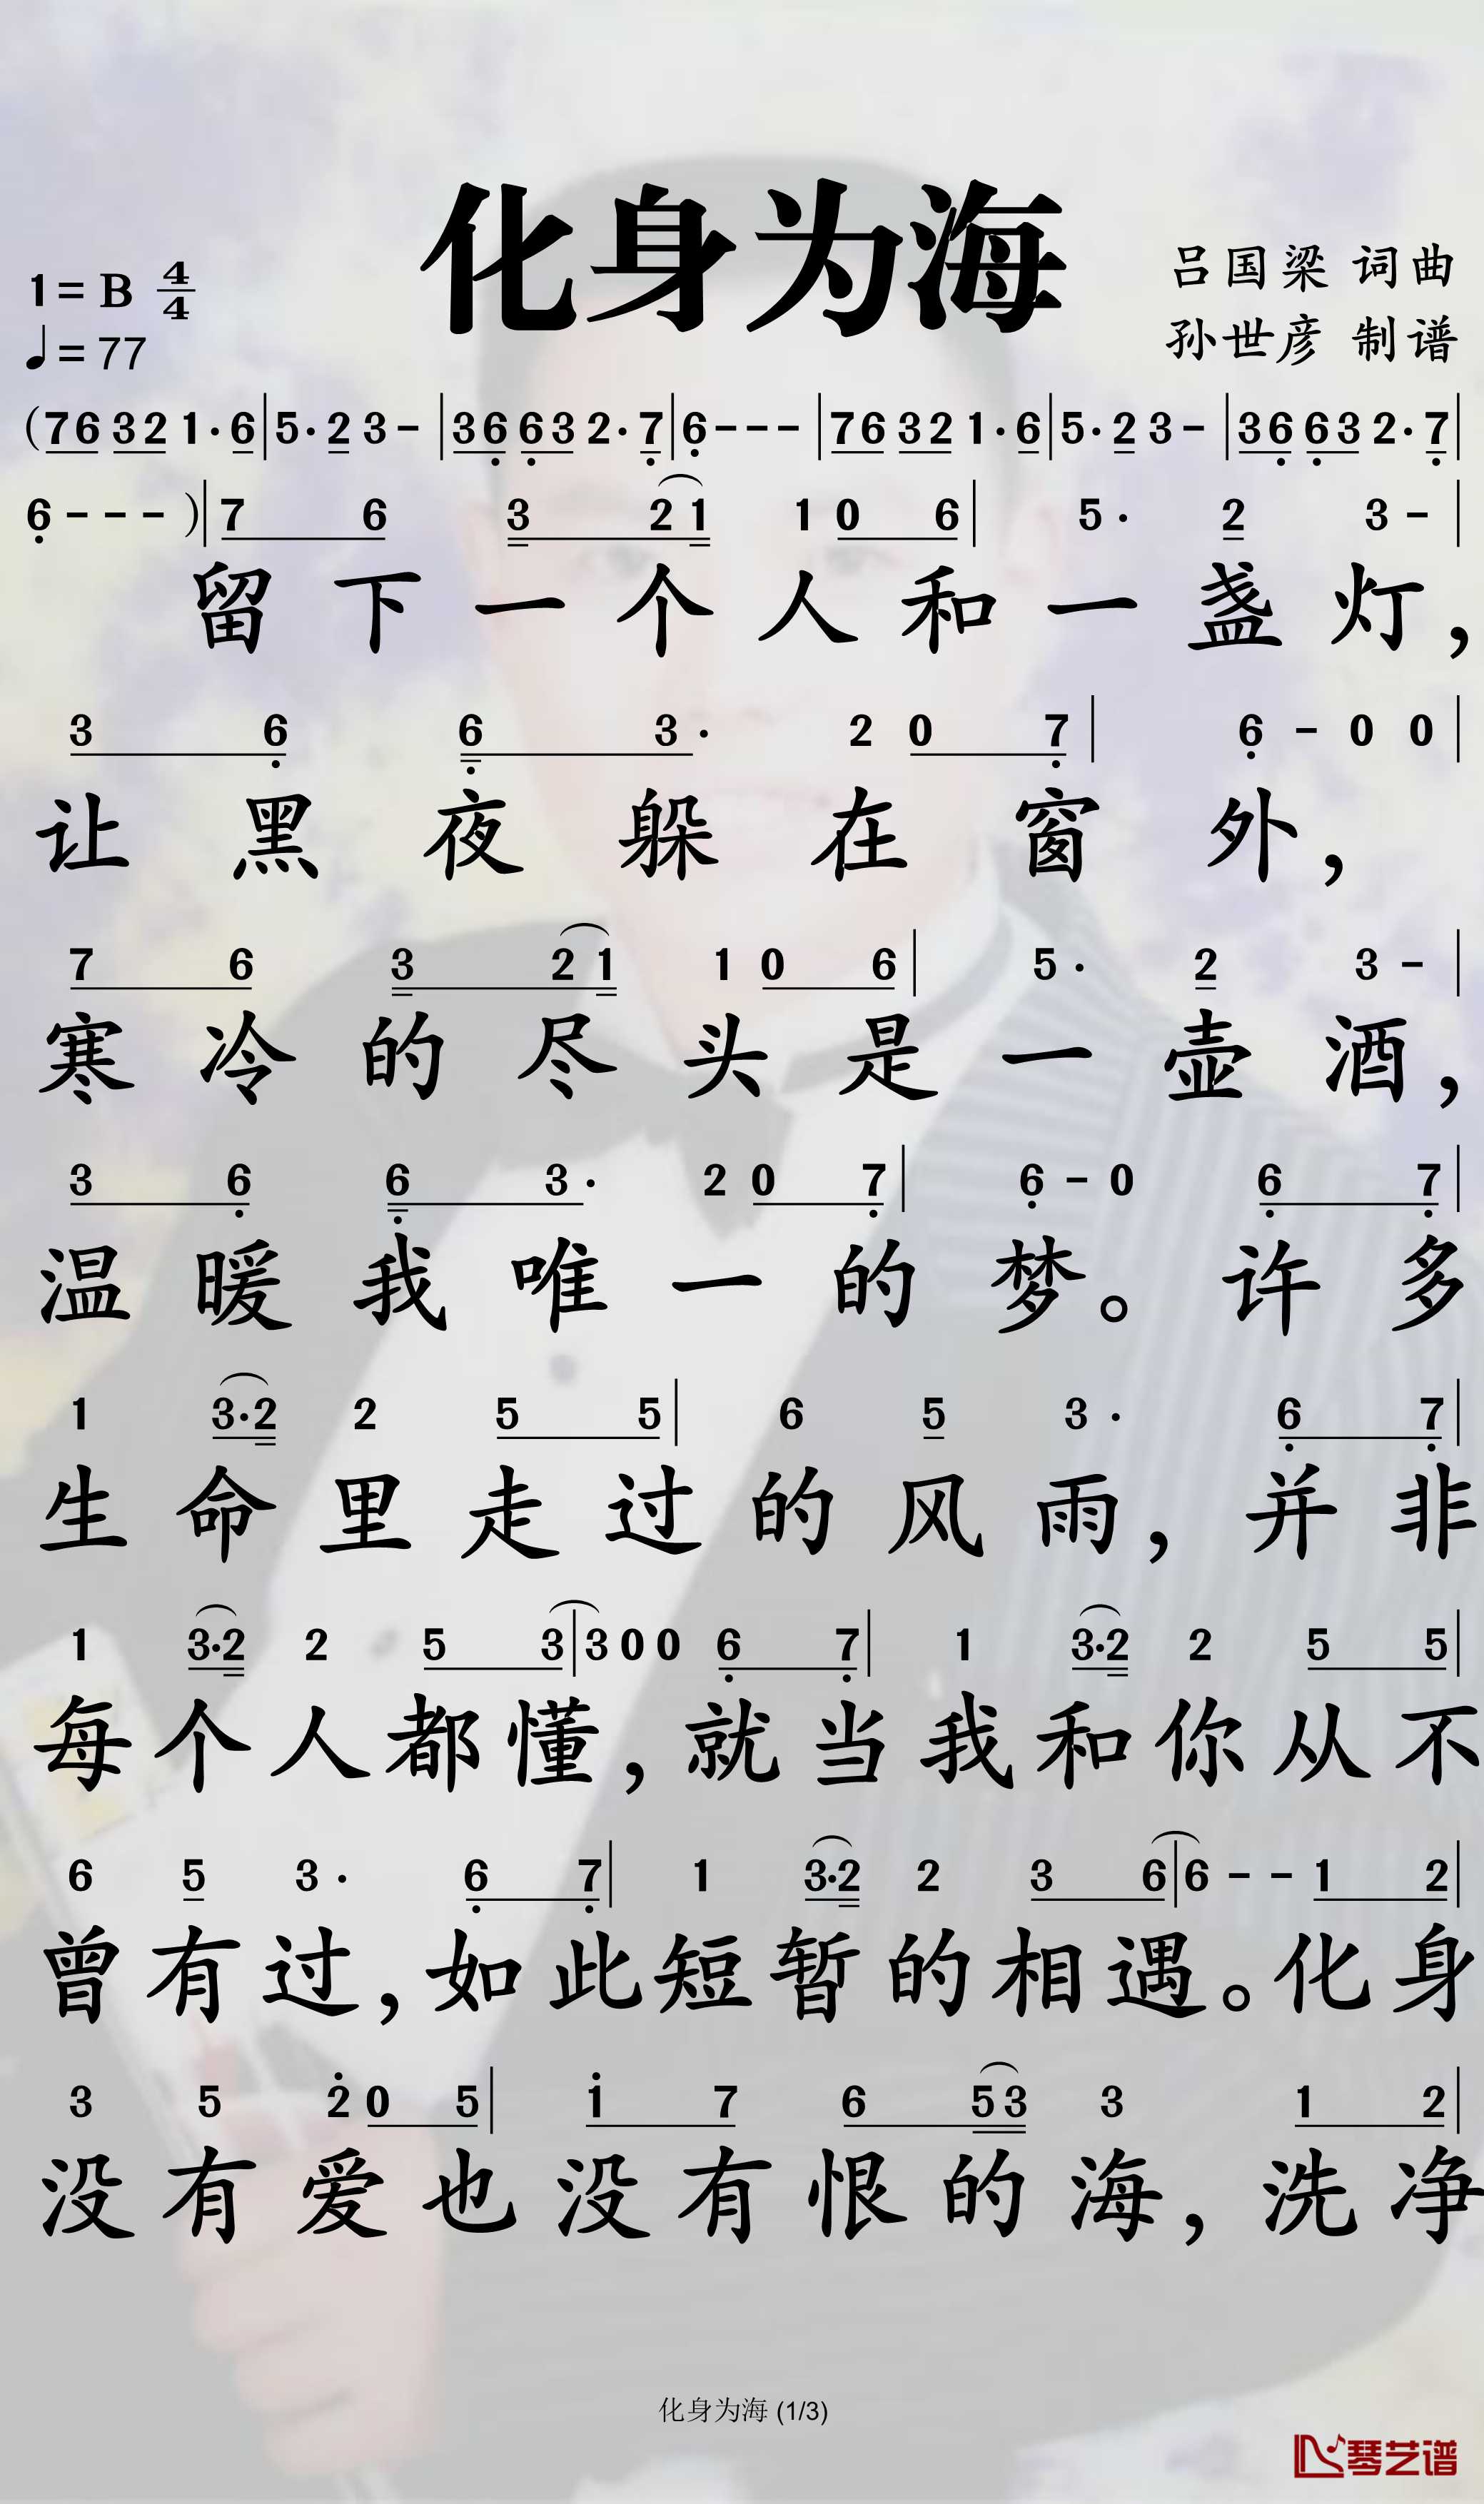 化身为海
1=B 4/4
♩=77
吕国梁 词曲
孙世彦 制谱
(76 32 1·6|5·2 3-|36 63 2·7|6---|76 32 1·6|5·2 3-|36 63 2·7|
6---)|7 6 3 21 1 0 6|5· 2 3-|
留下一个人和一盏灯，
3 6 6 3· 2 0 7|6-0 0|
让黑夜躲在窗外，
7 6 3 21 1 0 6|5· 2 3-|
寒冷的尽头是一壶酒，
3 6 6 3· 2 0 7|6-0 6 7|
温暖我唯一的梦。许多
1 3·2 2 5 5|6 5 3· 6 7|
生命里走过的风雨，并非
1 3·2 2 5 3|3 0 0 6 7|1 3·2 2 5 5|
每个人都懂，就当我和你从不
6 5 3· 6 7|1 3·2 2 3 6|6--1 2|
曾有过，如此短暂的相遇。化身
3 5 2̇ 0 5|1̇ 7 6 53 3 1 2|
没有爱也没有恨的海，洗净
化身为海 (1/3)
琴艺谱